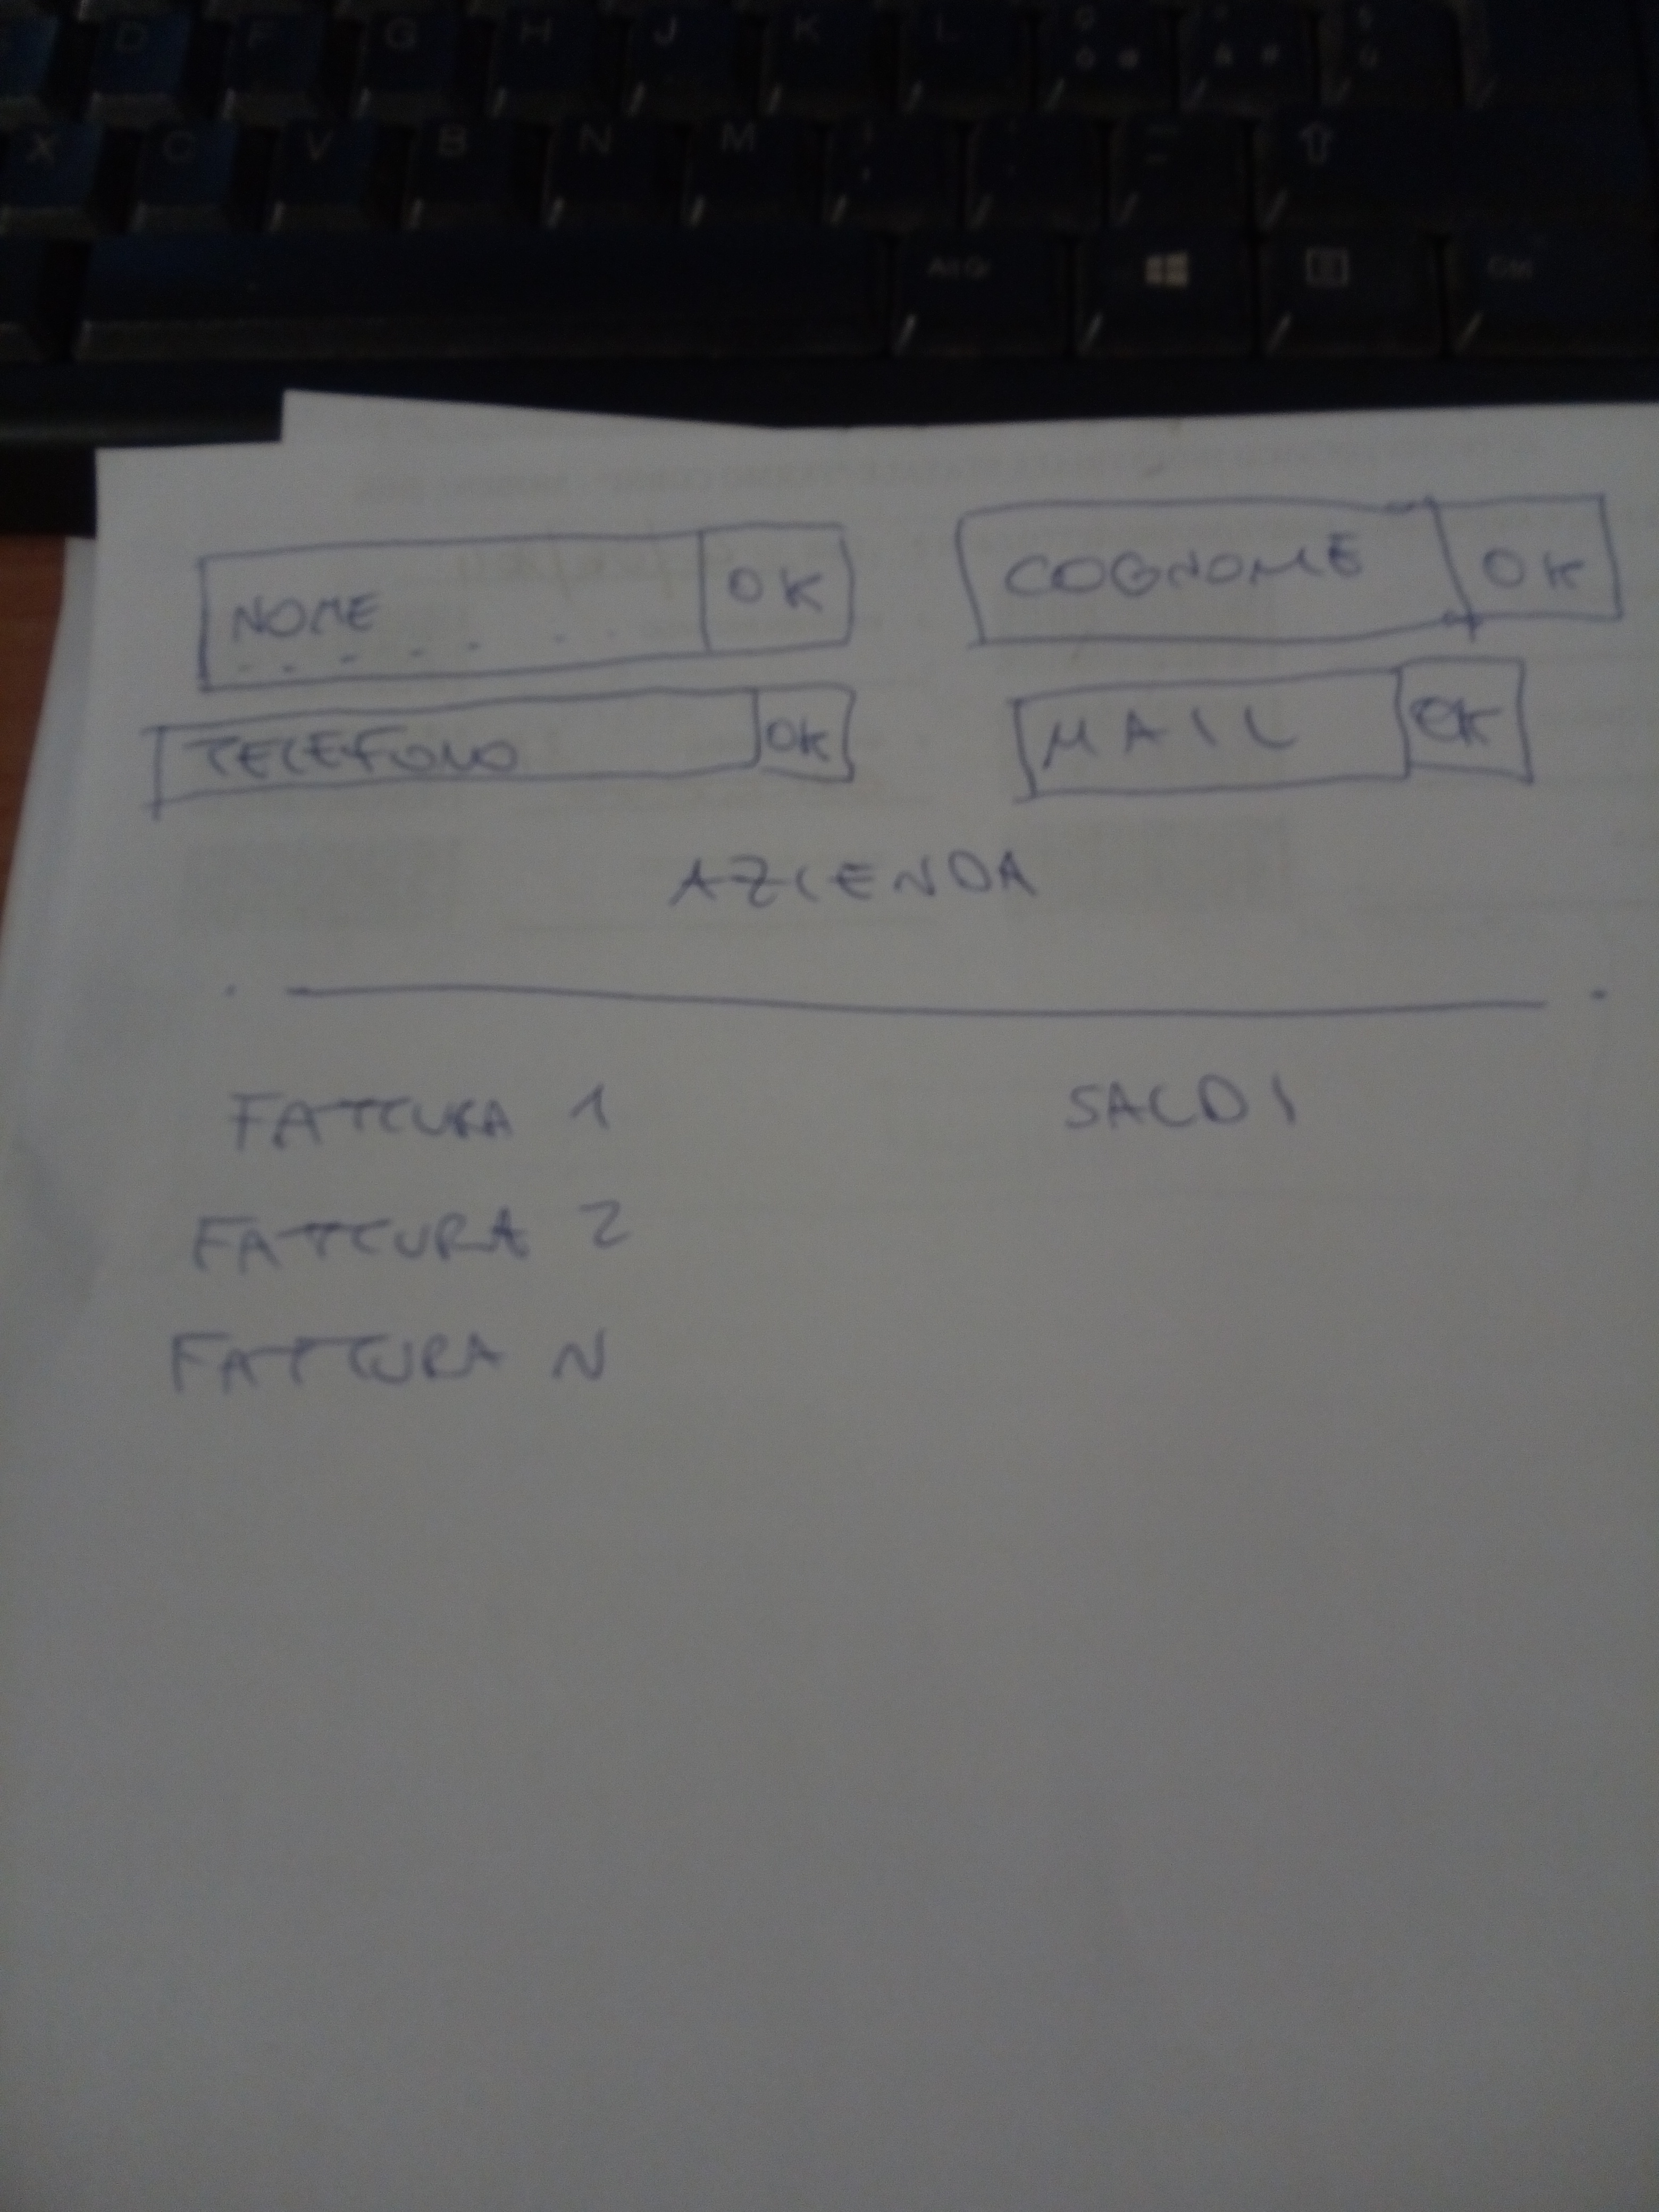 D F G H J K L
X C V B N M
Alt Gr
NOME OK COGNOME OK
TELEFONO OK MAIL OK
AZIENDA
FATTURA 1 SALDI
FATTURA 2
FATTURA N